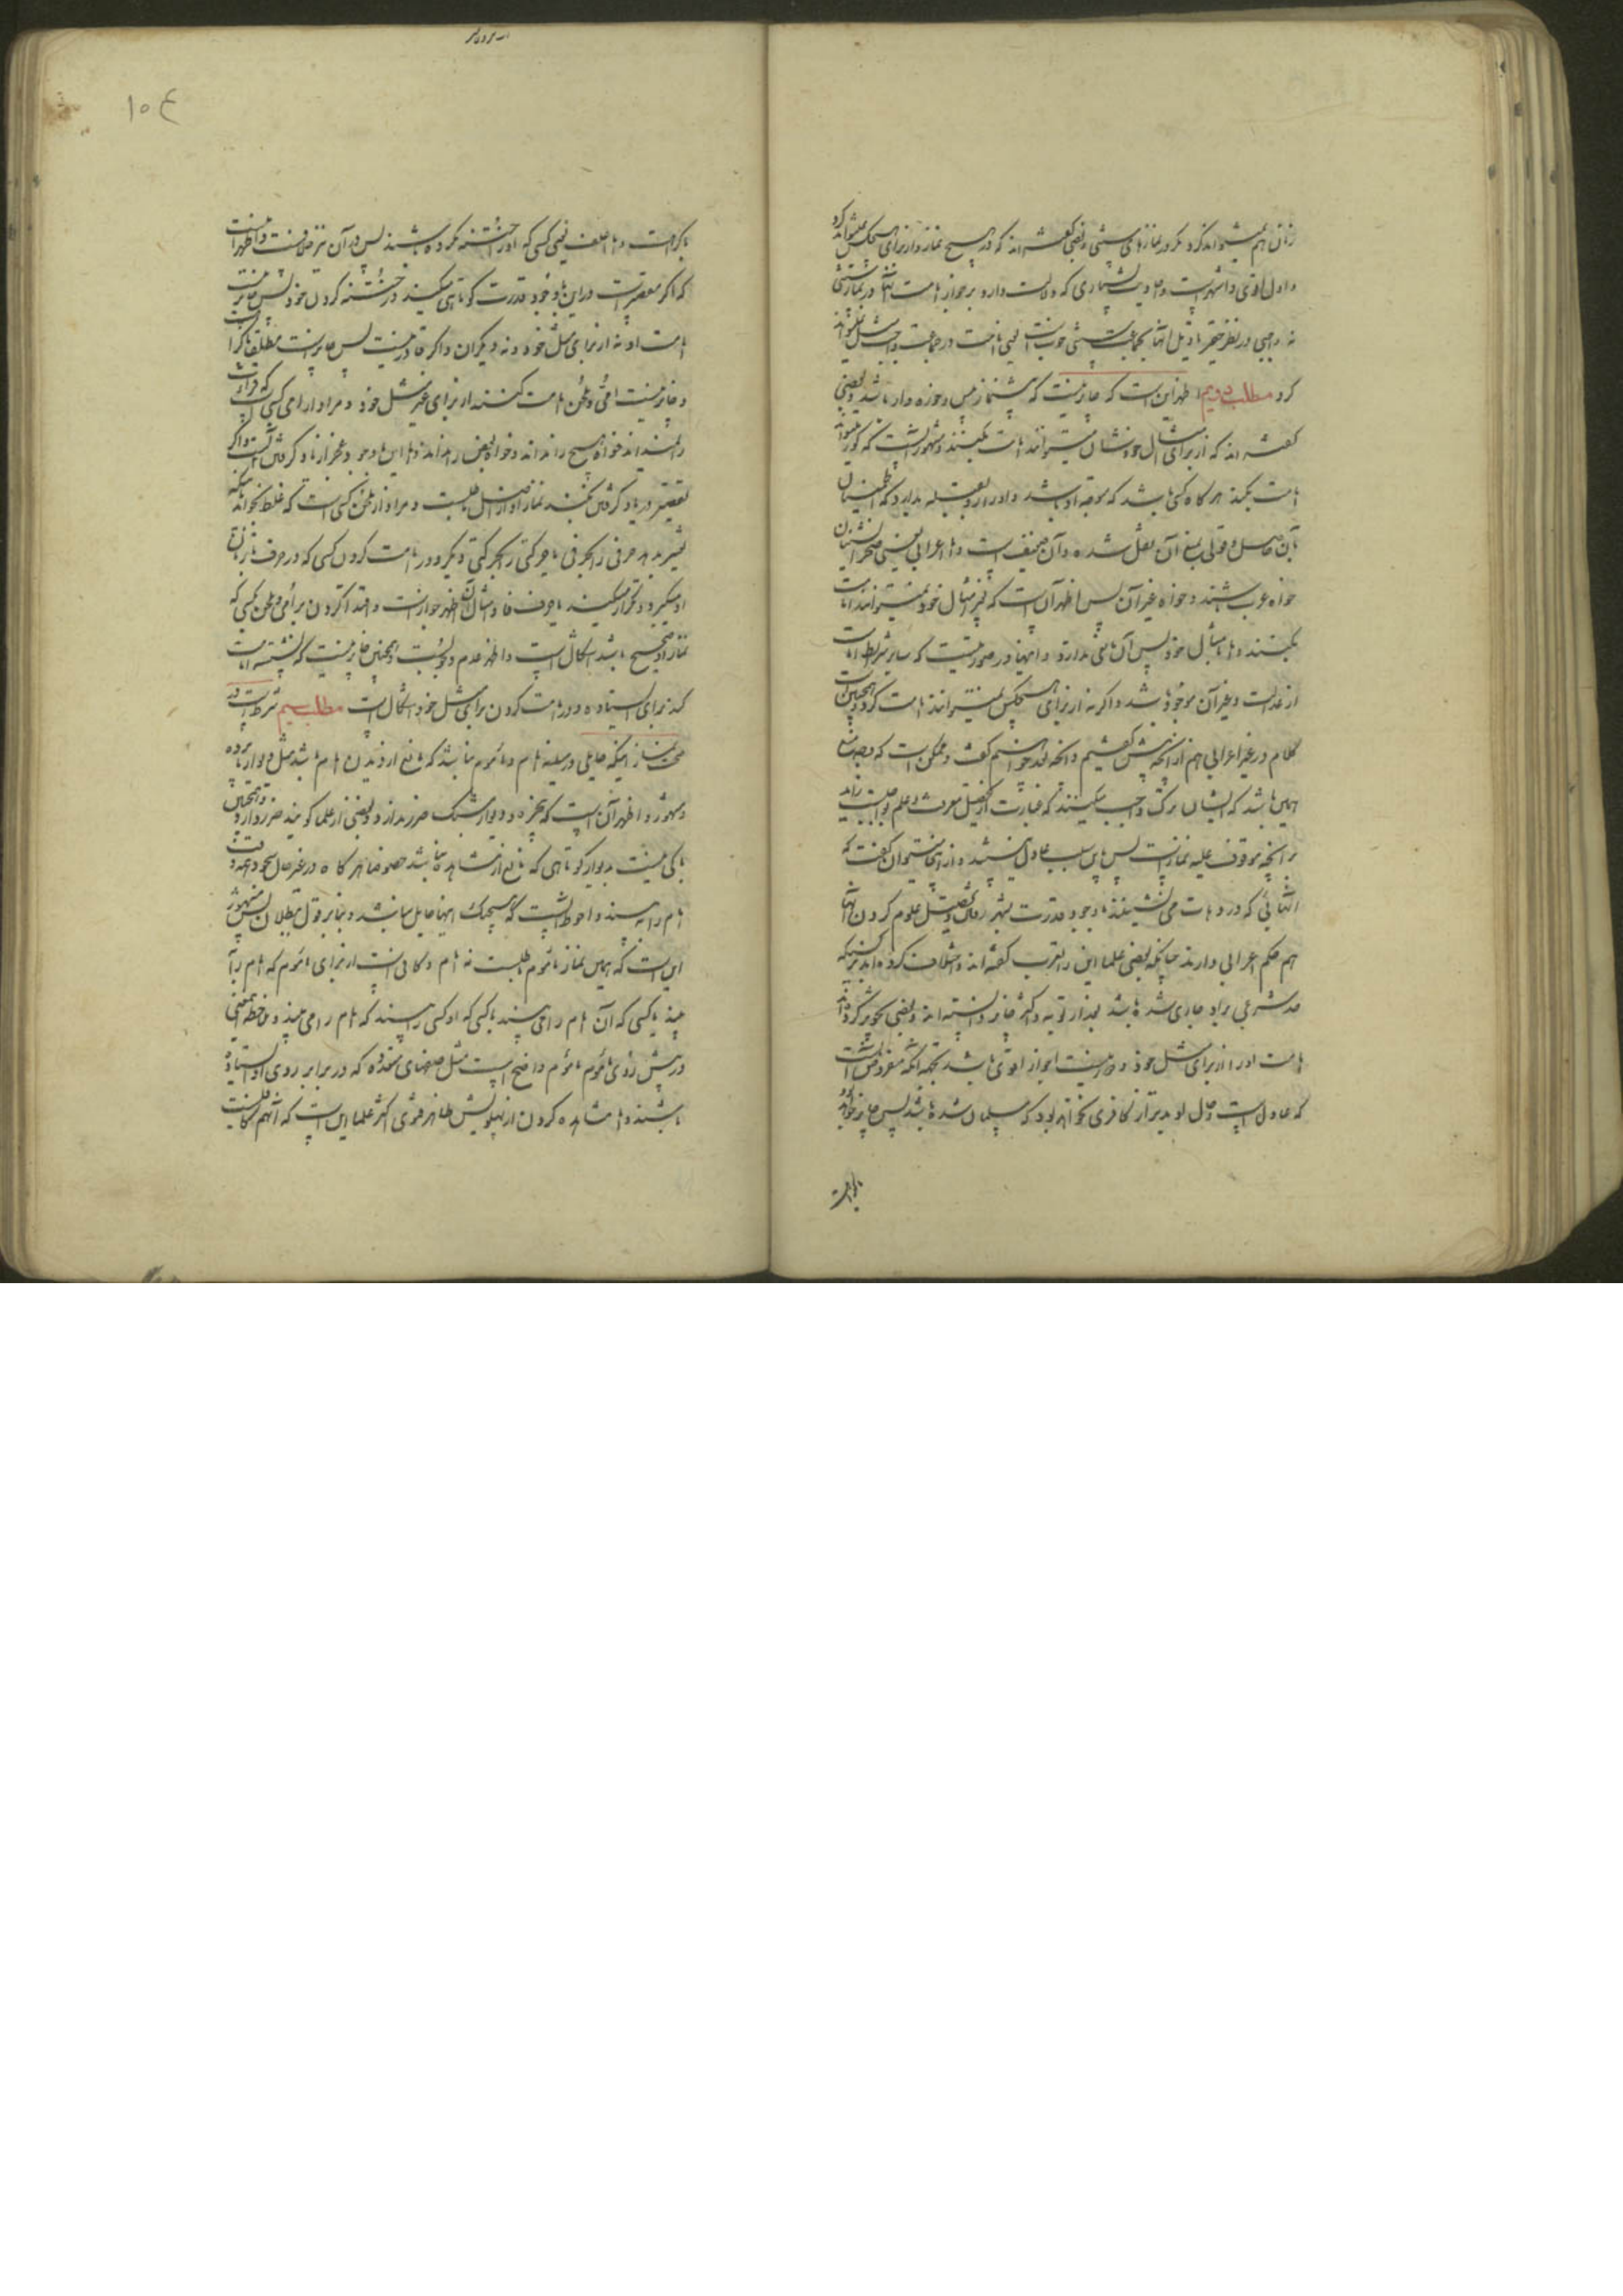 زنان هم نمیتواند کرد مگر در نمازهای سنتی و بعضی گفته اند که در هیچ نماز از برای هیچکس نمیتواند کرد
و اول اقوی و اشهر است و احادیث بسیاری که دلالت دارد بر جواز امامت در نماز سنتی
نه واجبی در نظر حقیر تاویل آنها بجماعت سنتی خوبست یعنی امامت در جماعت واجب نمیتواند
کرد مطلب دویم اظهر این است که جایز نیست که پیشنماز پیس و خوره دار باشد و بعضی
گفته اند که از برای امثال خودشان میتوانند امامت بکنند و مشهور آنست که کور میتواند
امامت بکند هر گاه کسی باشد که متوجه او باشد و او را رو بقبله بدارد که اطمینان
بآن حاصل و قولی بمنع آن نقل شده و آن ضعیف است و اما اعرابی یعنی صحرا نشینان
خواه عرب باشند و خواه غیر آن پس اظهر آنست که بغیر امثال خود نمیتوانند امامت
بکنند و اما بامثال خود پس آن مانعی ندارد و اینها در صورتیست که سایر شرایط امامت
از عدالت و غیر آن موجود باشد و اگر نه از برای هیچکس نمیتوانند امامت کرد و همچنین است
کلام در غیر اعرابی هم از آنچه پیش گفتیم و آنچه بعد خواهیم گفت و ممکن است که وجه منع
همین باشد که ایشان ترک واجب میکنند که عبارت از تحصیل معرفت و علم بواجبیست زاید
بر آنچه موقوف علیه نماز است پس باین سبب عادل نیستند و از اینجا میتوان گفت که
آنهائی که در دهات می نشینند با وجود قدرت بشهر رفتن و تحصیل علوم کردن آنها
هم حکم اعرابی دارند چنانکه بعضی علما این را بقریب گفته اند و خلاف کرده اند در کسیکه
حد شرعی بر او جاری شده باشد بعد از توبه و اکثر جایز دانسته اند و بعضی تجویز کرده اند
امامت او را از برای مثل خود و دور نیست جواز اقوی باشد بجهة آنکه مفروض آنست
که عادل است و حال او بدتر از کافری نخواهد بود که مسلمان شده باشد پس جایز خواهد بود
بکراهت
١٠٤
بکراهت و اما اغلف یعنی کسی که او را ختنه نکرده باشند پس در آن نیز خلافست و اظهر آنست
که اگر مقصر است در این باوجود قدرت کوتاهی میکند در ختنه کردن خود پس جایز نیست
امامت او نه از برای مثل خود و نه دیگران و اگر قادر نیست پس جایز است مطلقا بکراهت
و جایز نیست امی و ملحن امامت کنند از برای غیر مثل خود و مراد از امی کسی است که قرائت
را نمیداند خواه هیچ را نداند و خواه بعض را نداند و اما این باوجود عجز از یاد گرفتن است و اگر
تقصیر در یاد گرفتن بکند نماز او از اصل باطلست و مراد از ملحن کسی است که غلط بخواند باینکه
تغییر بدهد حرفی را بحرفی یا حرکتی را بحرکتی دیگر و در امامت کردن کسی که در حرف تا زبان
او میگیرد و تکرار میکند یا حرف فا و مثال آن اظهر جواز است و اقتدا کردن برای ملحن بکسی که
نماز او صحیح باشد اشکال است و اظهر عدم وجوبست و همچنین جایز نیست که نشسته امامت
کند برای ایستاده و در امامت کردن برای مثل خود اشکال است مطلب سیم شرط است در
صحت نماز اینکه حایلی در میانه امام و ماموم نباشد که مانع از دیدن امام باشد مثل دیوار یا پرده
و مشهور و اظهر آنست که پنجره و دیوار مشبک ضرر ندارد و بعضی از علما گویند ضرر دارد و همچنین
باکی نیست بدیوار کوتاهی که مانع از مشاهده نباشد خصوصا هر گاه در غیر حال سجود
امام را ببیند و احوط آنست که هیچیک اینها حایل نباشد و بنابر قول ببطلان پس مشهور
این است که همین نماز ماموم باطلست نه امام و کافی است از برای ماموم که امام را
ببیند یا کسی که آن امام را می بیند یا کسی که او کسی را ببیند که امام را می بیند و ملاحظه این معنی
در پیش روی ماموم واضح است مثل صفهای متعدده که در برابر روی او ایستاده
باشند و اما مشاهده کردن از پهلویش ظاهر فتوی اکثر علما این است که آنهم کافیست